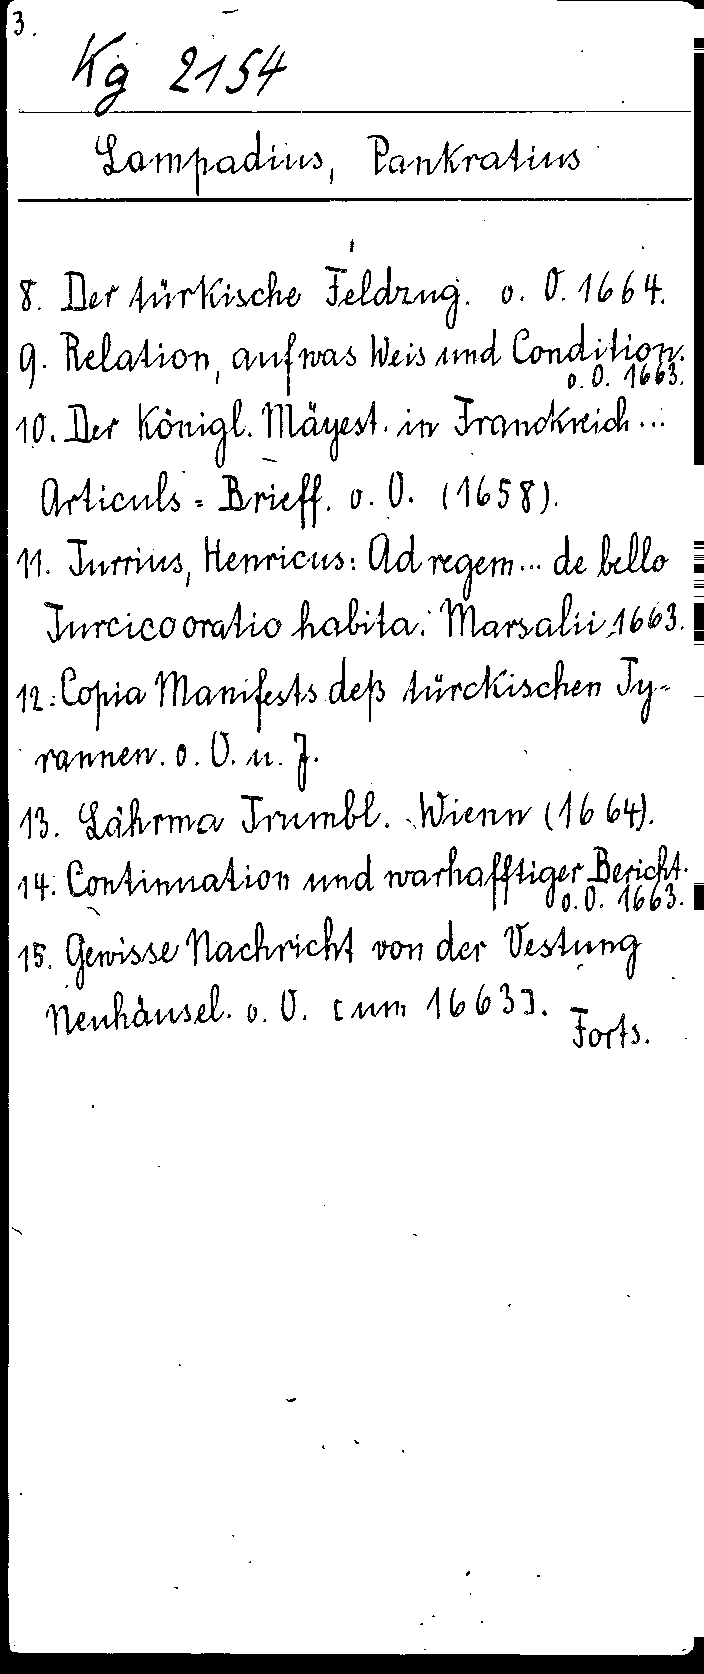 3.
Kg 2154
Lampadius, Pankratius
8. Der türkische Feldzug. o. O. 1664.
9. Relation, auf was Weis und Condition.
o. O. 1663.
10. Der Königl. Mäyest. in Franckreich ...
Articuls = Brieff. o. O. (1658).
11. Turrius, Henricus: Ad regem ... de bello
Turcico oratio habita. Marsalii, 1663.
12. Copia Manifests deß türckischen Ty-
rannen. o. O. u. J.
13. Lährma Trumbl. Wienn (1664).
14. Continuation und warhafftiger Bericht.
o. O. 1663.
15. Gewisse Nachricht von der Vestung
Neuhäusel. o. O. [um 1663].
Forts.